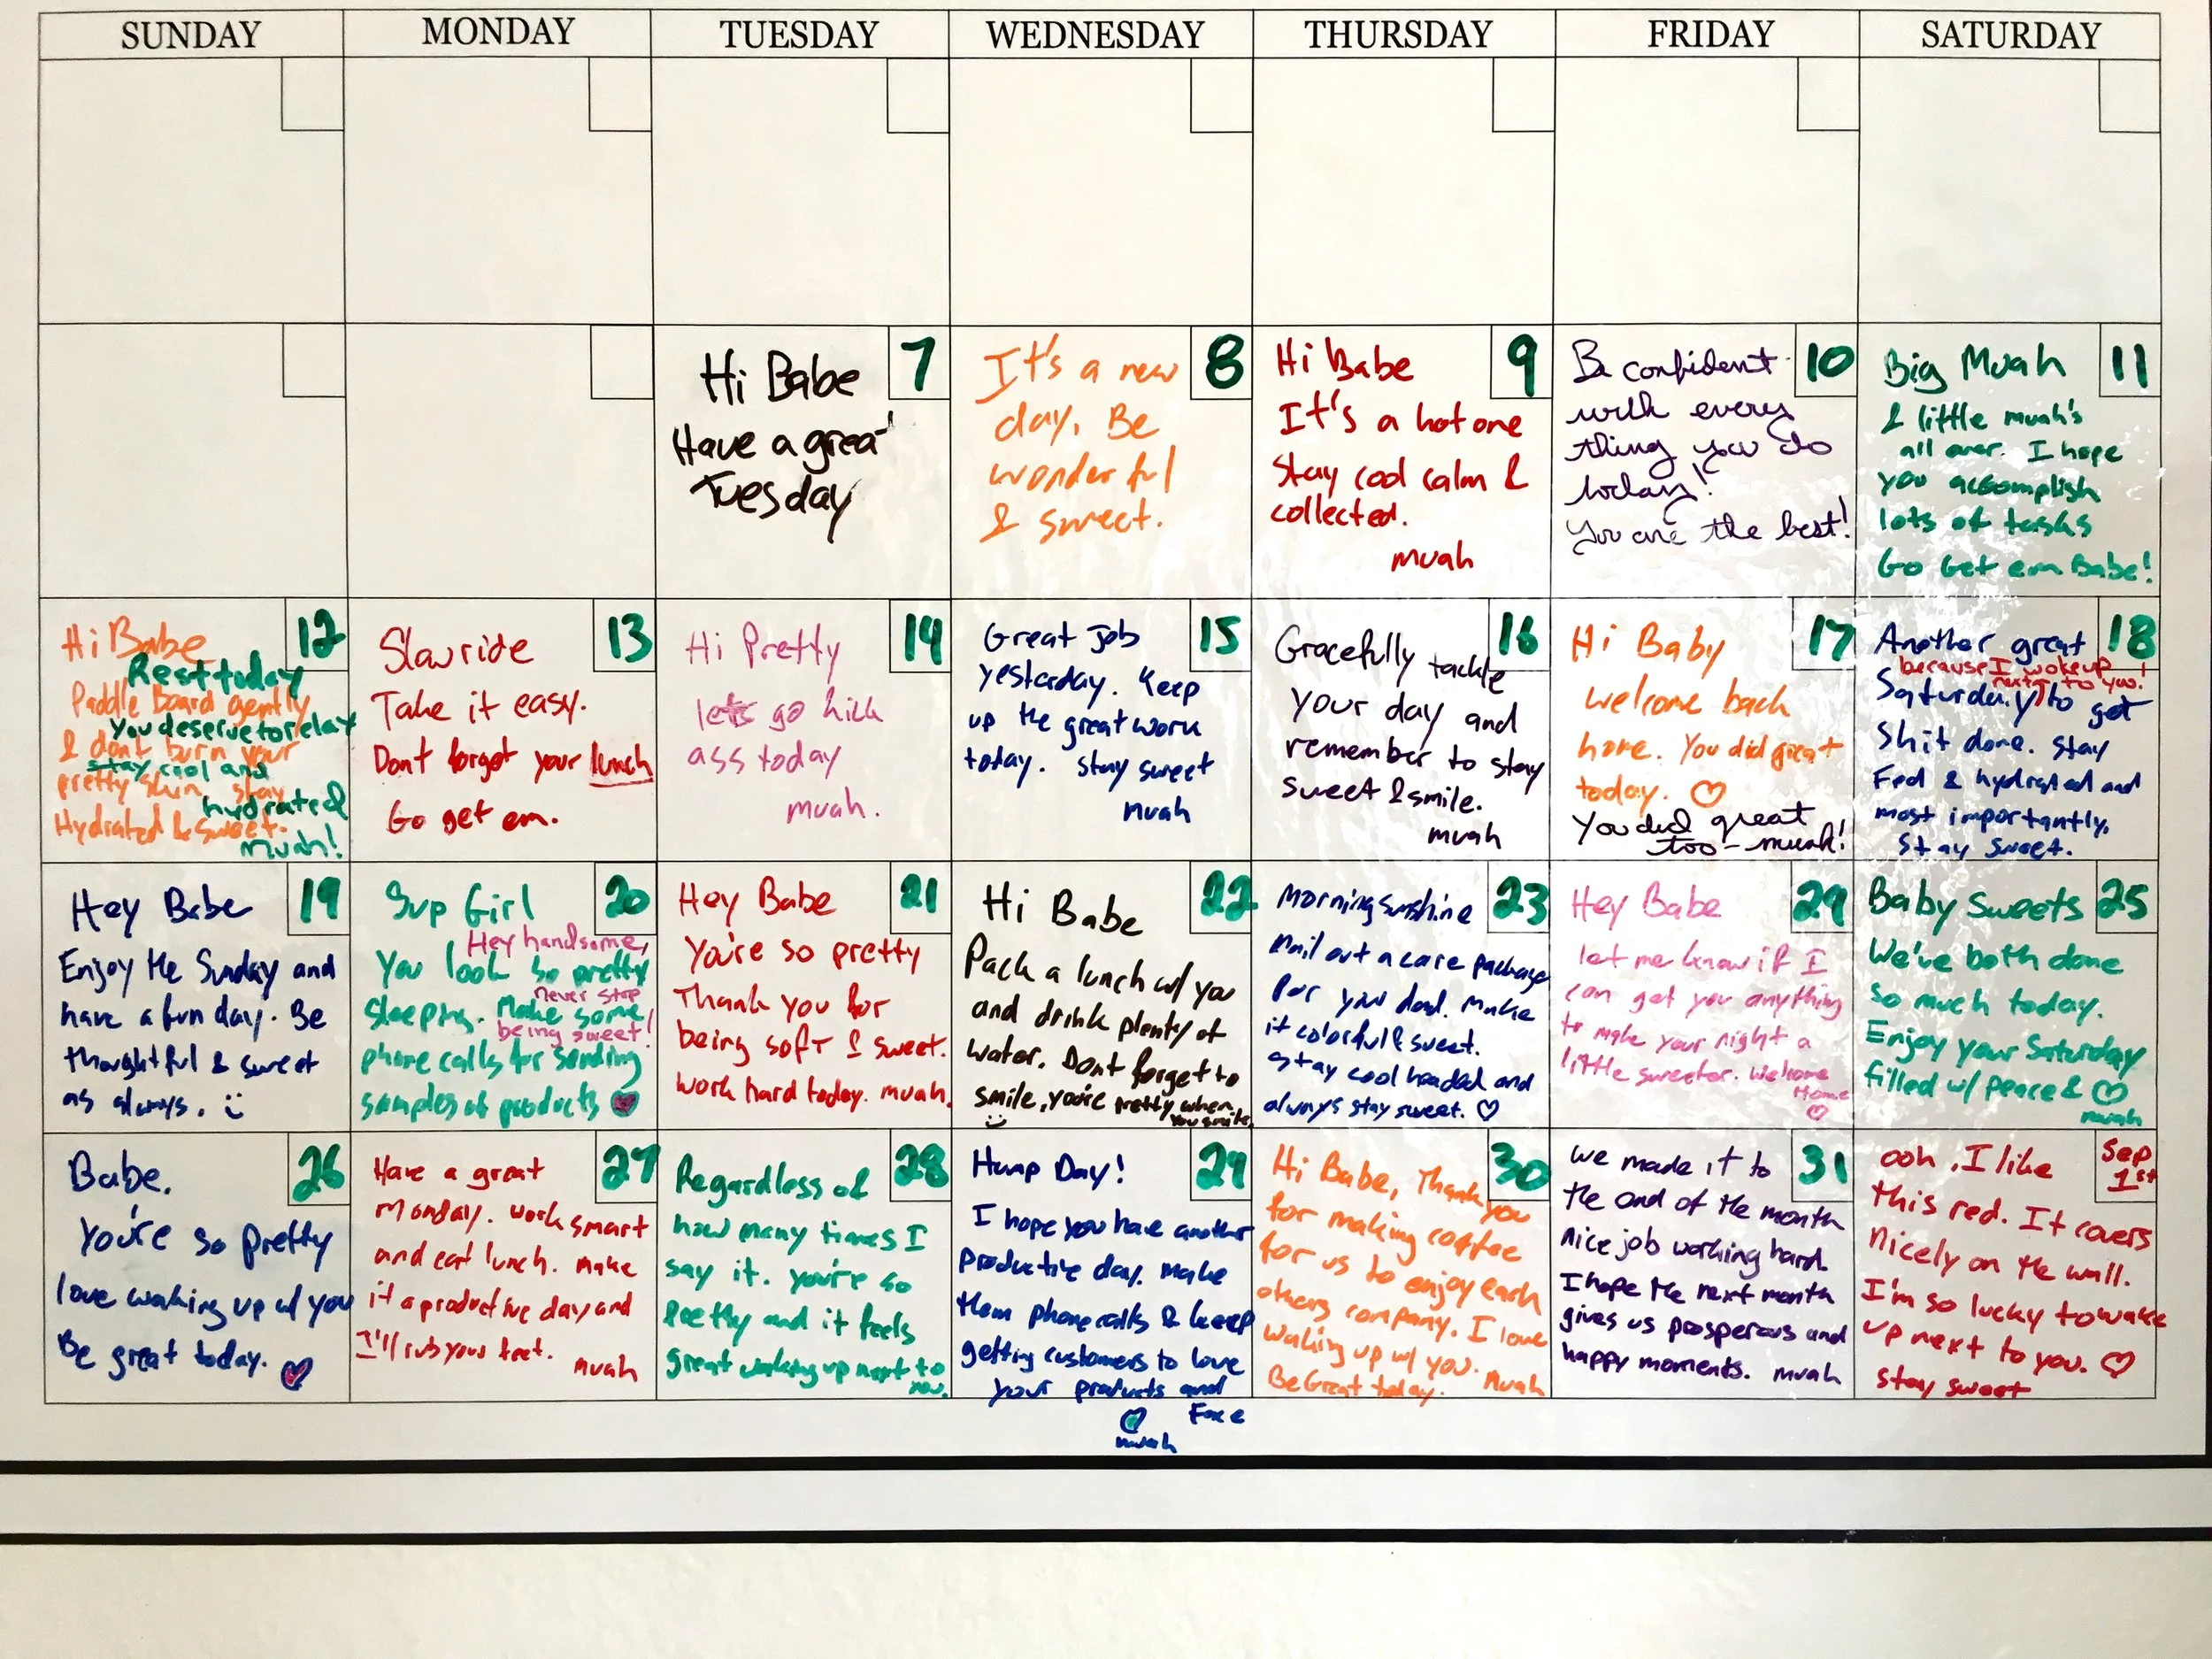 SUNDAY MONDAY TUESDAY WEDNESDAY THURSDAY FRIDAY SATURDAY
7
Hi Babe
Have a great
Tuesday
8
It's a new
day. Be
wonderful
& sweet.
9
Hi Babe
It's a hot one
Stay cool calm &
collected.
muah
10
Be confident
with every
thing you do
today!
You are the best!
11
Big Muah
& little muah's
all over. I hope
you accomplish
lots of tasks
Go Get em Babe!
12
Hi Babe
Rest today
Paddle Board gently
You deserve to relax
& dont burn your
stay cool and
pretty skin stay
hydrated
Hydrated & sweet.
Muah!
13
Slow ride
Take it easy.
Dont forget your lunch
Go get em.
14
Hi Pretty
lets go kick
ass today
muah.
15
Great Job
yesterday. Keep
up the great work
today. stay sweet
muah
16
Gracefully tackle
your day and
remember to stay
sweet & smile.
muah
17
Hi Baby
welcome back
home. You did great
today. ♡
You did great
too - muah!
18
Another great
because I woke up
next to you!
Saturday to get
Shit done. Stay
Fed & hydrated and
most importantly,
Stay Sweet.
19
Hey Babe
Enjoy the Sunday and
have a fun day. Be
thoughtful & sweet
as always. :)
20
Sup Girl
Hey handsome,
You look so pretty
never stop
sleeping. Make some
being sweet!
phone calls for sending
samples of products
21
Hey Babe
You're so pretty
Thank you for
being soft & sweet.
work hard today. muah.
22
Hi Babe
Pack a lunch w/ you
and drink plenty of
water. Dont forget to
smile, you're pretty when
you smile
:)
23
Morning sunshine
Mail out a care package
for your dad. Make
it colorful & sweet.
stay cool headed and
always stay sweet. ♡
24
Hey Babe
let me know if I
can get you anything
to make your night a
little sweeter. Welcome
Home
♡
25
Baby Sweets
We've both done
so much today.
Enjoy your Saturday
filled w/ peace & ♡
muah
26
Babe.
You're so pretty
love waking up w/ you
Be great today.
27
Have a great
Monday. work smart
and eat lunch. Make
it a productive day and
I'll rub your feet.
muah
28
Regardless of
how many times I
say it. you're so
Peetty and it feels
great waking up next to
you.
29
Hump Day!
I hope you have another
Productive day. Make
them phone calls & keep
getting customers to love
your products and
Face
muah
30
Hi Babe, Thank you
for making coffee
for us to enjoy each
others company. I love
waking up w/ you.
Be Great today. Muah
31
we made it to
the end of the month
nice job working hard.
I hope the next month
gives us prosperous and
happy moments. muah
Sep
1st
ooh, I like
this red. It covers
nicely on the wall.
I'm so lucky to wake
up next to you. ♡
stay sweet